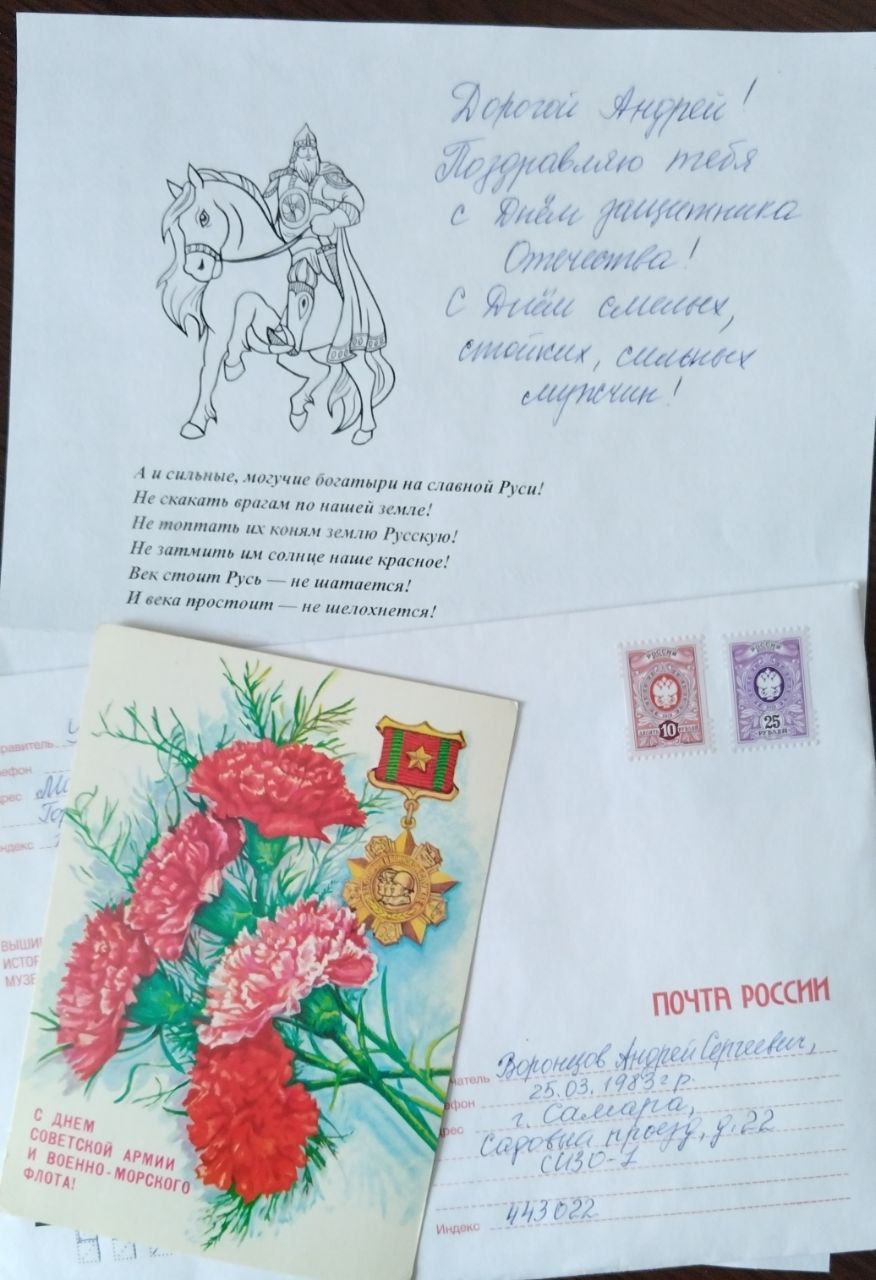 Дорогой Андрей!
Поздравляю тебя
с Днём защитника
Отечества!
С Днём смелых,
стойких, сильных
мужчин!
А и сильные, могучие богатыри на славной Руси!
Не скакать врагам по нашей земле!
Не топтать их коням землю Русскую!
Не затмить им солнце наше красное!
Век стоит Русь — не шатается!
И века простоит — не шелохнется!
РОССИЯ
ДЕСЯТЬ 10 РУБЛЕЙ
РОССИЯ
25
РУБЛЕЙ
правитель
лефон
рес
Гор
ндекс
ВЫШИ
ИСТОР
МУЗЕ
С ДНЕМ
СОВЕТСКОЙ АРМИИ
И ВОЕННО-МОРСКОГО
ФЛОТА!
ПОЧТА РОССИИ
чатель Воронцов Андрей Сергеевич,
фон 25.03.1983 г.р.
рес г. Самара,
Садовый проезд, д. 22
СИЗО-1
Индекс 443022